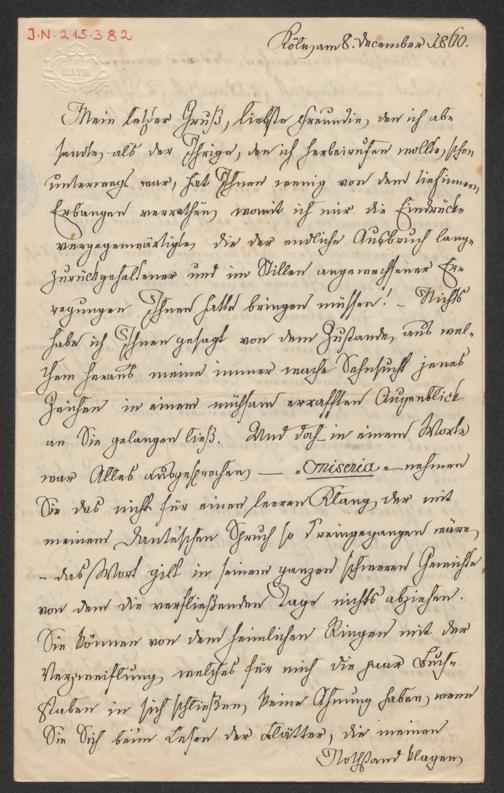 J.N. 215.382
BATH
Köln, am 8. December 1860.
Mein letzter Gruß, liebste Freundin, den ich ab-
sandte, als der Ihrige, den ich herbeirufen wollte, schon
unterwegs war, hat Ihnen wenig von dem tiefinnern
Erbangen verrathen, womit ich mir die Eindrücke
vergegenwärtigte, die der endliche Ausbruch lang-
zurückgehaltener und im Stillen angewachsener Er-
regungen Ihnen hatte bringen müssen! – Nichts
habe ich Ihnen gesagt von dem Zustande, aus wel-
chem heraus meine immer wache Sehnsucht jenes
Zeichen in einem mühsam errafften Augenblick
an Sie gelangen ließ. Und doch in einem Worte
war Alles ausgesprochen, — „miseria“ – nehmen
Sie das nicht für einen leeren Klang, der mit
meinem Dante'schen Spruch so dreingegangen wäre,
– das Wort gilt in seinem ganzen schweren Gewichte
von dem die verfließenden Tage nichts abziehen.
Sie können von dem heimlichen Ringen mit der
Verzweiflung, welches für mich die paar Buch-
staben in sich schließen, keine Ahnung haben, wenn
Sie Sich beim Lesen der Blätter, die meinen
Nothstand klagen,